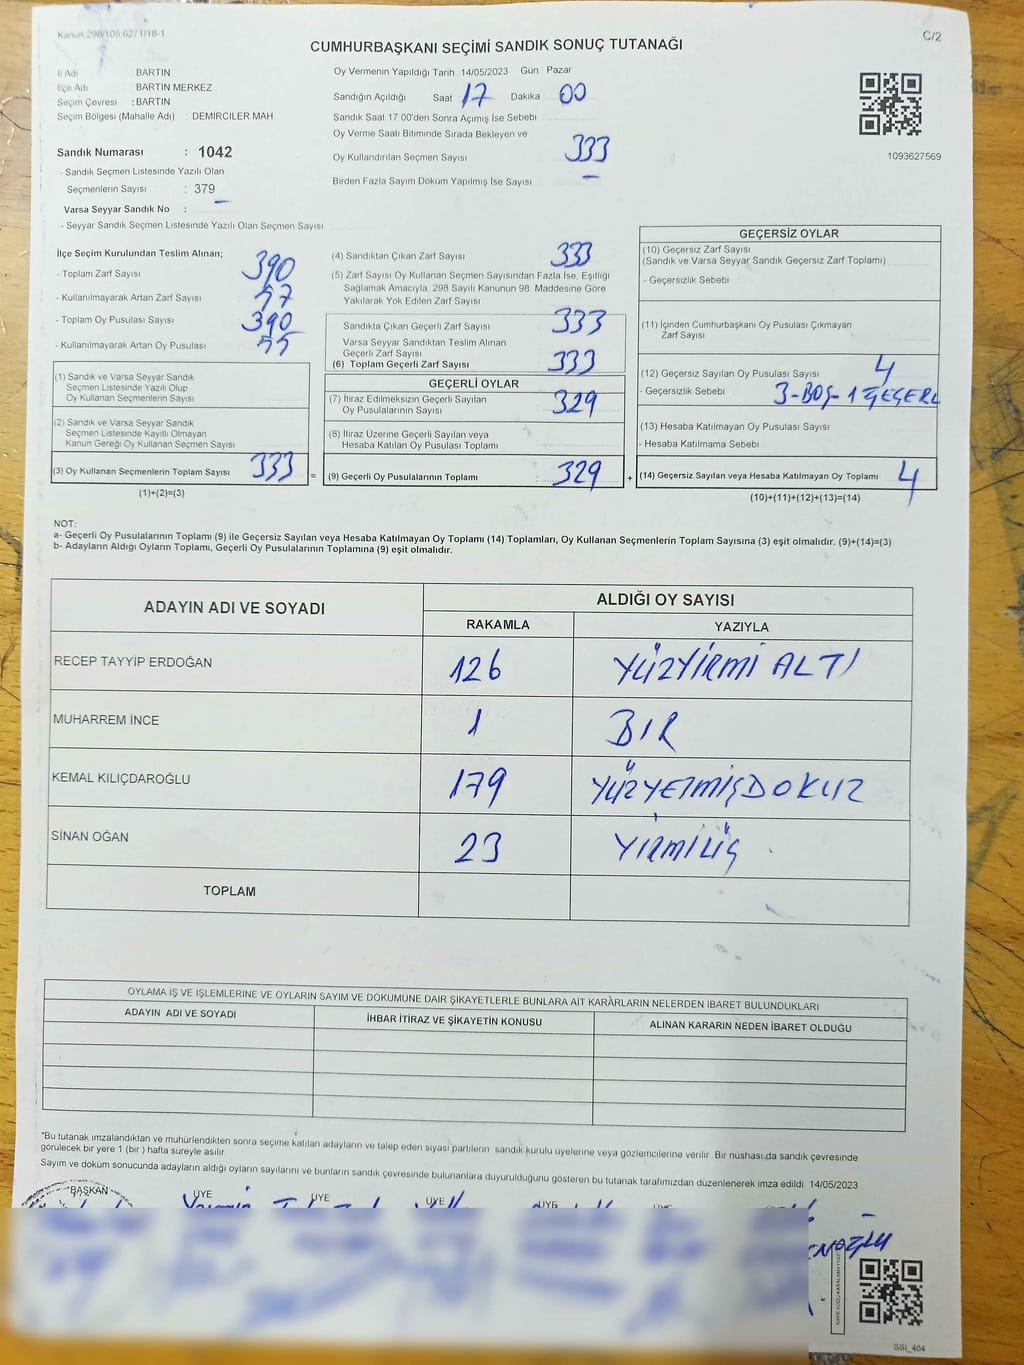 Kanun 298/105,6271/18-1
C/2
CUMHURBAŞKANI SEÇİMİ SANDIK SONUÇ TUTANAĞI
İl Adı BARTIN
İlçe Adı BARTIN MERKEZ
Seçim Çevresi : BARTIN
Seçim Bölgesi (Mahalle Adı) : DEMİRCİLER MAH
Sandık Numarası : 1042
- Sandık Seçmen Listesinde Yazılı Olan
Seçmenlerin Sayısı : 379
Varsa Seyyar Sandık No : -
- Seyyar Sandık Seçmen Listesinde Yazılı Olan Seçmen Sayısı
Oy Vermenin Yapıldığı Tarih : 14/05/2023 Gün Pazar
Sandığın Açıldığı Saat 17 Dakika 00
Sandık Saat 17.00'den Sonra Açımış İse Sebebi
Oy Verme Saati Bitiminde Sırada Bekleyen ve
Oy Kullandırılan Seçmen Sayısı 333
Birden Fazla Sayım Döküm Yapılmış İse Sayısı -
1093627569
İlçe Seçim Kurulundan Teslim Alınan;
- Toplam Zarf Sayısı 390
- Kullanılmayarak Artan Zarf Sayısı 57
- Toplam Oy Pusulası Sayısı 390
- Kullanılmayarak Artan Oy Pusulası
(1) Sandık ve Varsa Seyyar Sandık
Seçmen Listesinde Yazılı Olup
Oy Kullanan Seçmenlerin Sayısı
(2) Sandık ve Varsa Seyyar Sandık
Seçmen Listesinde Kayıtlı Olmayan
Kanun Gereği Oy Kullanan Seçmen Sayısı
(3) Oy Kullanan Seçmenlerin Toplam Sayısı 333 =
(1)+(2)=(3)
(4) Sandıktan Çıkan Zarf Sayısı 333
(5) Zarf Sayısı Oy Kullanan Seçmen Sayısından Fazla İse, Eşitliği
Sağlamak Amacıyla, 298 Sayılı Kanunun 98. Maddesine Göre
Yakılarak Yok Edilen Zarf Sayısı
Sandıkta Çıkan Geçerli Zarf Sayısı 333
Varsa Seyyar Sandıktan Teslim Alınan
Geçerli Zarf Sayısı
(6) Toplam Geçerli Zarf Sayısı 333
GEÇERLİ OYLAR
(7) İtiraz Edilmeksizin Geçerli Sayılan
Oy Pusulalarının Sayısı 329
(8) İtiraz Üzerine Geçerli Sayılan veya
Hesaba Katılan Oy Pusulası Toplamı
(9) Geçerli Oy Pusulalarının Toplamı : 329 +
GEÇERSİZ OYLAR
(10) Geçersiz Zarf Sayısı
(Sandık ve Varsa Seyyar Sandık Geçersiz Zarf Toplamı)
- Geçersizlik Sebebi
(11) İçinden Cumhurbaşkanı Oy Pusulası Çıkmayan
Zarf Sayısı
(12) Geçersiz Sayılan Oy Pusulası Sayısı 4
- Geçersizlik Sebebi 3-BOŞ-1
(13) Hesaba Katılmayan Oy Pusulası Sayısı
- Hesaba Katılmama Sebebi
(14) Geçersiz Sayılan veya Hesaba Katılmayan Oy Toplamı 4
(10)+(11)+(12)+(13)=(14)
NOT:
a- Geçerli Oy Pusulalarının Toplamı (9) ile Geçersiz Sayılan veya Hesaba Katılmayan Oy Toplamı (14) Toplamları, Oy Kullanan Seçmenlerin Toplam Sayısına (3) eşit olmalıdır. (9)+(14)=(3)
b- Adayların Aldığı Oyların Toplamı, Geçerli Oy Pusulalarının Toplamına (9) eşit olmalıdır.
ADAYIN ADI VE SOYADI ALDIĞI OY SAYISI
RAKAMLA YAZIYLA
RECEP TAYYİP ERDOĞAN 126 YÜZYİRMİ ALTI
MUHARREM İNCE 1 BIR
KEMAL KILIÇDAROĞLU 179 YÜZYETMİŞDOKUZ
SİNAN OĞAN 23 YİRMİÜÇ
TOPLAM
OYLAMA İŞ VE İŞLEMLERİNE VE OYLARIN SAYIM VE DÖKÜMÜNE DAİR ŞİKAYETLERLE BUNLARA AİT KARARLARIN NELERDEN İBARET BULUNDUKLARI
ADAYIN ADI VE SOYADI İHBAR İTİRAZ VE ŞİKAYETİN KONUSU ALINAN KARARIN NEDEN İBARET OLDUĞU
*Bu tutanak imzalandıktan ve mühürlendikten sonra seçime katılan adayların ve talep eden siyasi partilerin sandık kurulu üyelerine veya gözlemcilerine verilir. Bir nüshası da sandık çevresinde
görülecek bir yere 1 (bir ) hafta süreyle asılır.
Sayım ve döküm sonucunda adayların aldığı oyların sayılarını ve bunların sandık çevresinde bulunanlara duyurulduğunu gösteren bu tutanak tarafımızdan düzenlenerek imza edildi. 14/05/2023
BAŞKAN ÜYE ÜYE ÜYE ÜYE
SSI_404